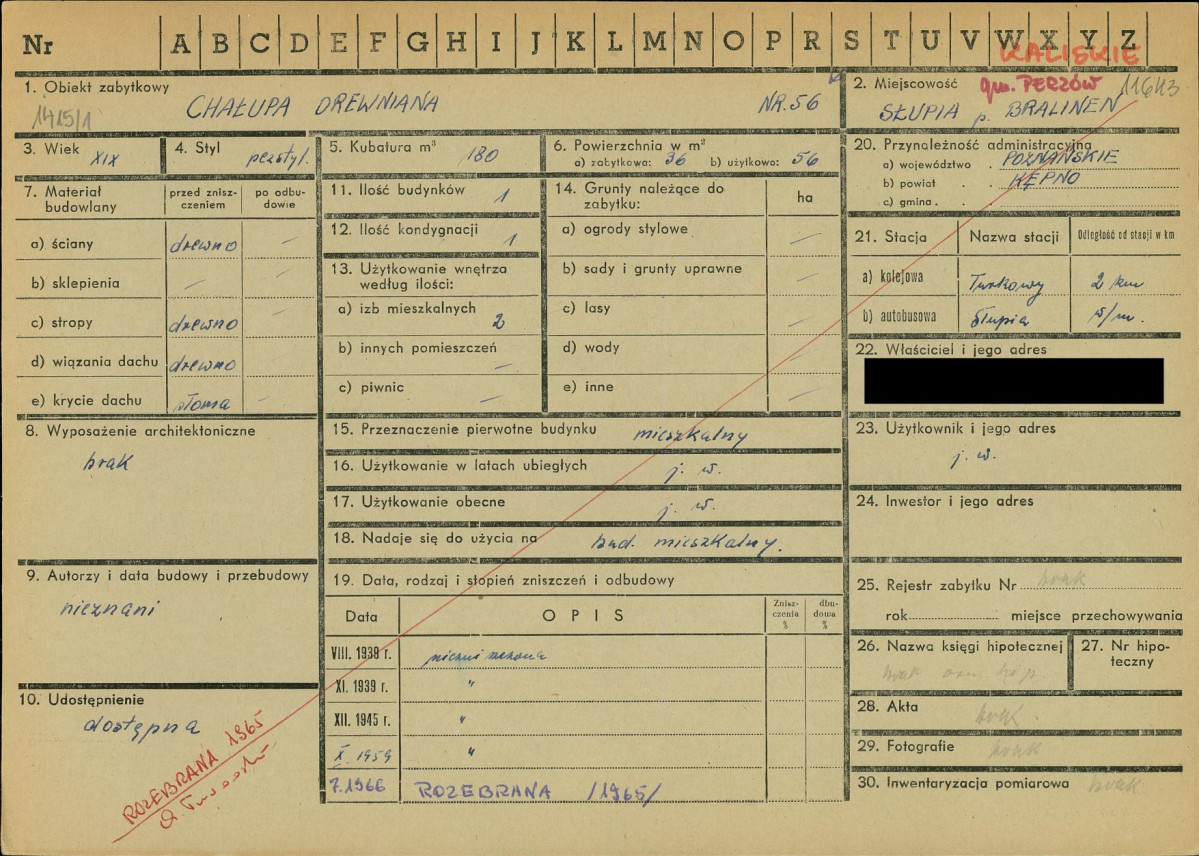 Nr A B C D E F G H I J K L M N O P R S T U V W X Y Z
KALISKIE
1. Obiekt zabytkowy
1415/1
CHAŁUPA DREWNIANA NR. 56
2. Miejscowość gm. PERZÓW 11643
SŁUPIA p. BRALINEN
3. Wiek XIX
4. Styl bezstyl.
5. Kubatura m³ 180
6. Powierzchnia w m²
a) zabytkowa: 36 b) użytkowa: 56
20. Przynależność administracyjna
a) województwo . POZNAŃSKIE
b) powiat . . KĘPNO
c) gmina . . .
7. Materiał budowlany
przed znisz-
czeniem
po odbu-
dowie
a) ściany drewno –
b) sklepienia – –
c) stropy drewno –
d) wiązania dachu drewno
e) krycie dachu słoma –
11. Ilość budynków 1
12. Ilość kondygnacji 1
13. Użytkowanie wnętrza
według ilości:
a) izb mieszkalnych 2
b) innych pomieszczeń –
c) piwnic –
14. Grunty należące do
zabytku:
ha
a) ogrody stylowe –
b) sady i grunty uprawne –
c) lasy –
d) wody –
e) inne –
21. Stacja Nazwa stacji Odległość od stacji w km
a) kolejowa Turkowy 2 km
b) autobusowa Słupia w/m.
22. Właściciel i jego adres
8. Wyposażenie architektoniczne
brak
15. Przeznaczenie pierwotne budynku mieszkalny
16. Użytkowanie w latach ubiegłych j. w.
17. Użytkowanie obecne j. w.
18. Nadaje się do użycia na bud. mieszkalny.
23. Użytkownik i jego adres
j. w.
24. Inwestor i jego adres
9. Autorzy i data budowy i przebudowy
nieznani
19. Data, rodzaj i stopień zniszczeń i odbudowy
Data OPIS
Znisz-
czenia
%
dbu-
dowa
%
VIII. 1939 r. niezniszczona
XI. 1939 r. "
XII. 1945 r. "
X. 1959 "
7.1966 ROZEBRANA /1965/
25. Rejestr zabytku Nr brak
rok miejsce przechowywania
26. Nazwa księgi hipotecznej
brak ozn. hip.
27. Nr hipo-
teczny
28. Akta brak.
29. Fotografie brak
30. Inwentaryzacja pomiarowa brak
10. Udostępnienie
dostępna
ROZEBRANA 1965